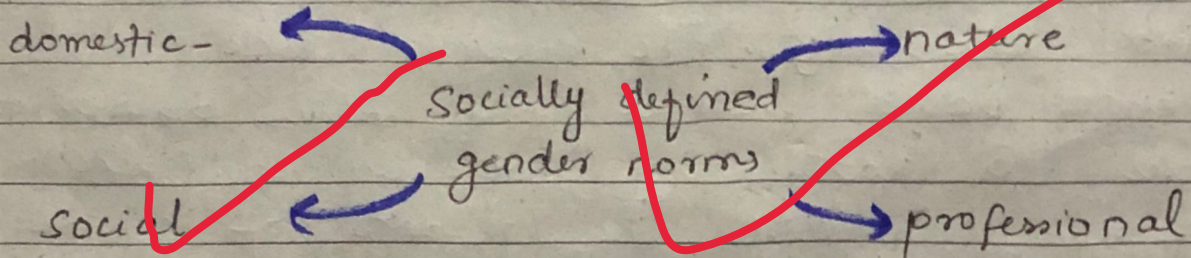 domestic-
nature
socially defined
gender norms
social
professional